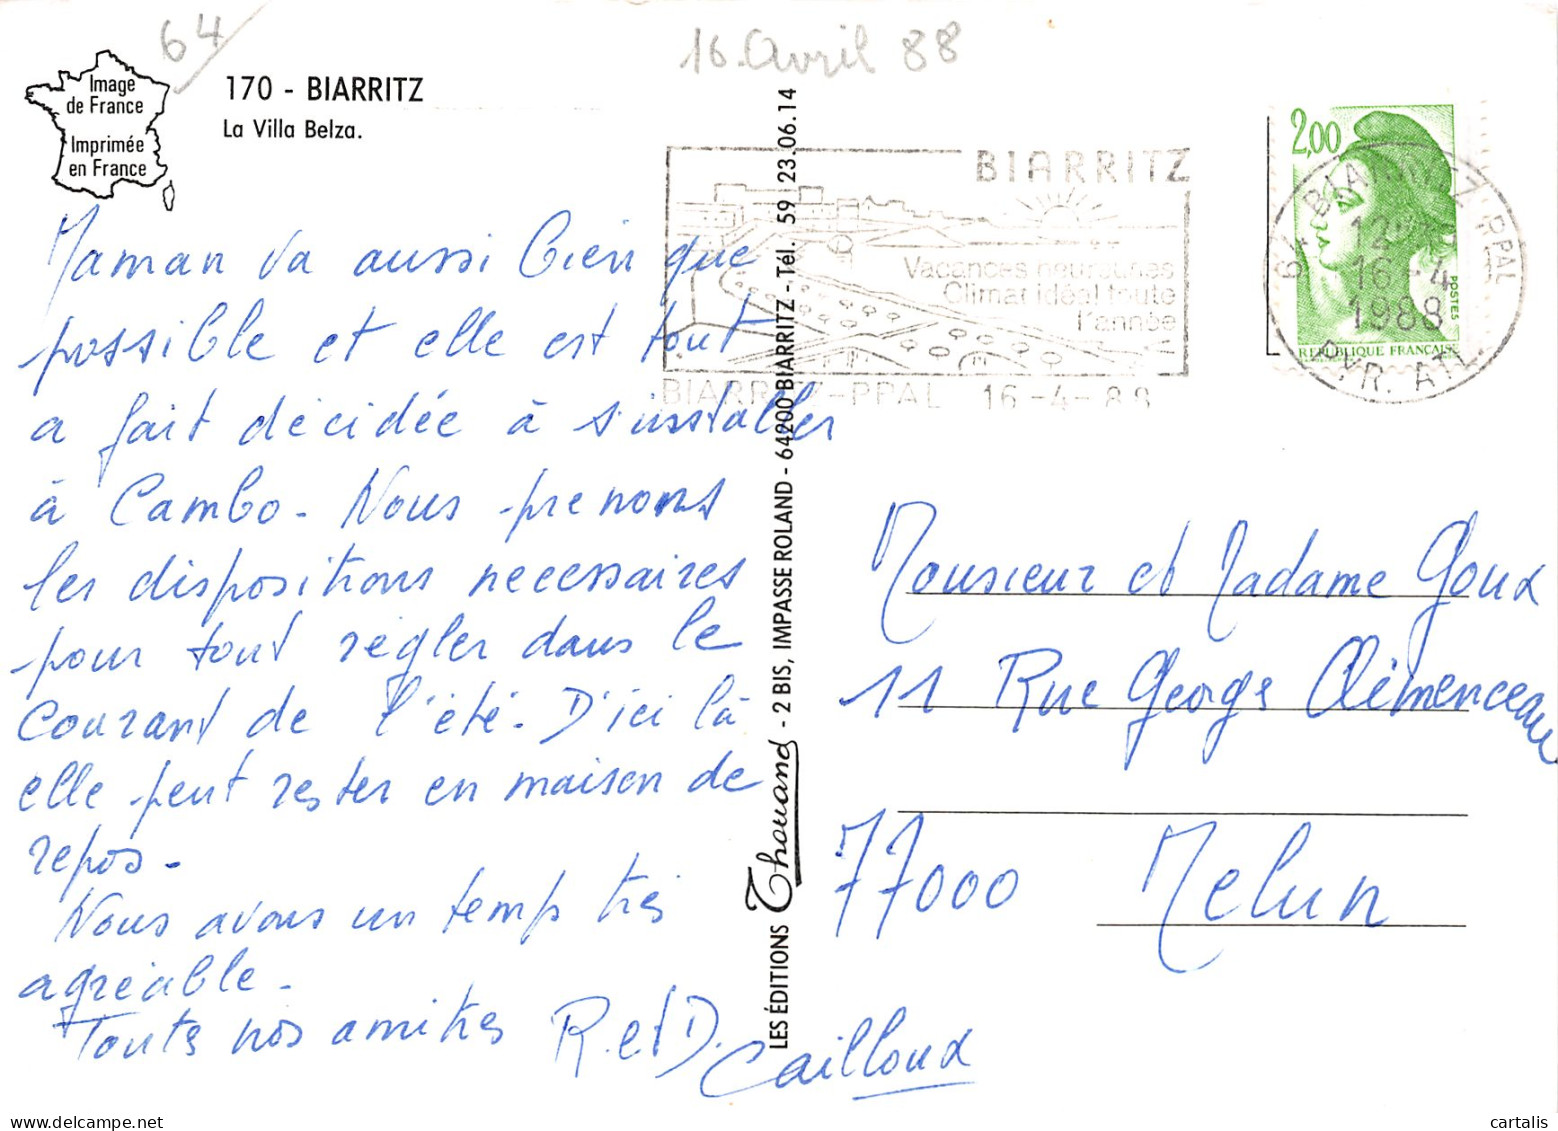 64
16 Avril 88
Image
de France
Imprimée
en France
170 - BIARRITZ
La Villa Belza.
Maman va aussi bien que
possible et elle est tout
a fait décidée à s'installer
à Cambo - Nous prenons
les dispositions necessaires
pour tout régler dans le
courant de l'été. D'ici là
elle peut rester en maison de
repos -
Nous avons un temps très
agréable -
Toutes nos amitiés R. et D.
Cailloux
LES ÉDITIONS Thouand - 2 BIS, IMPASSE ROLAND - 64200 BIARRITZ - Tél. 59 23.06.14
BIARRITZ
Vacances heureuses
Climat idéal toute
l'année
BIARRITZ-PPAL 16-4-88
2,00
POSTES
REPUBLIQUE FRANCAISE
64 BIARRITZ PPAL
16-4
1988
PYR. ATL
Monsieur et Madame Goux
11 Rue George Clémenceau
77000 Melun
cartalis